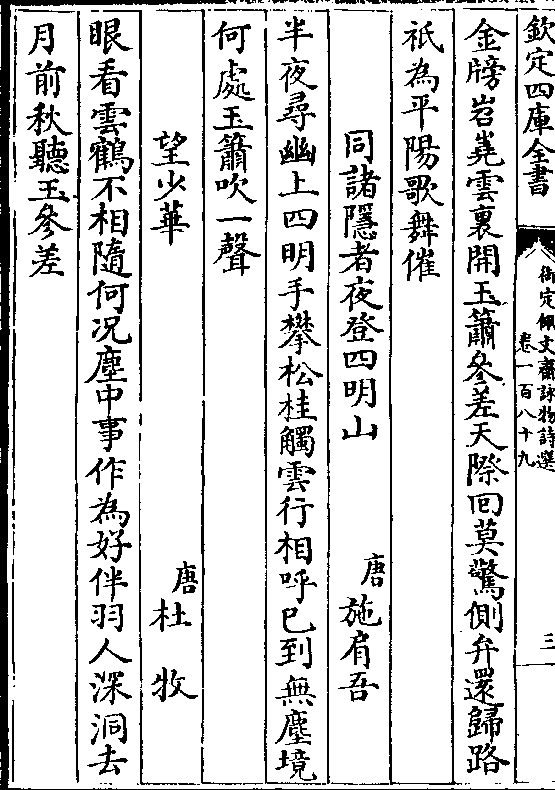 欽定四庫全書
御定佩文齋詠物詩選
卷一百八十九
三
金牓岧嶤雲裏開玉簫參差天際回莫驚側弁還歸路
祇為平陽歌舞催
同諸隱者夜登四明山 唐施肩吾
半夜尋幽上四明手攀松桂觸雲行相呼已到無塵境
何處玉簫吹一聲
望少華 唐杜牧
眼看雲鶴不相隨何況塵中事作為好伴羽人深洞去
月前秋聽玉參差